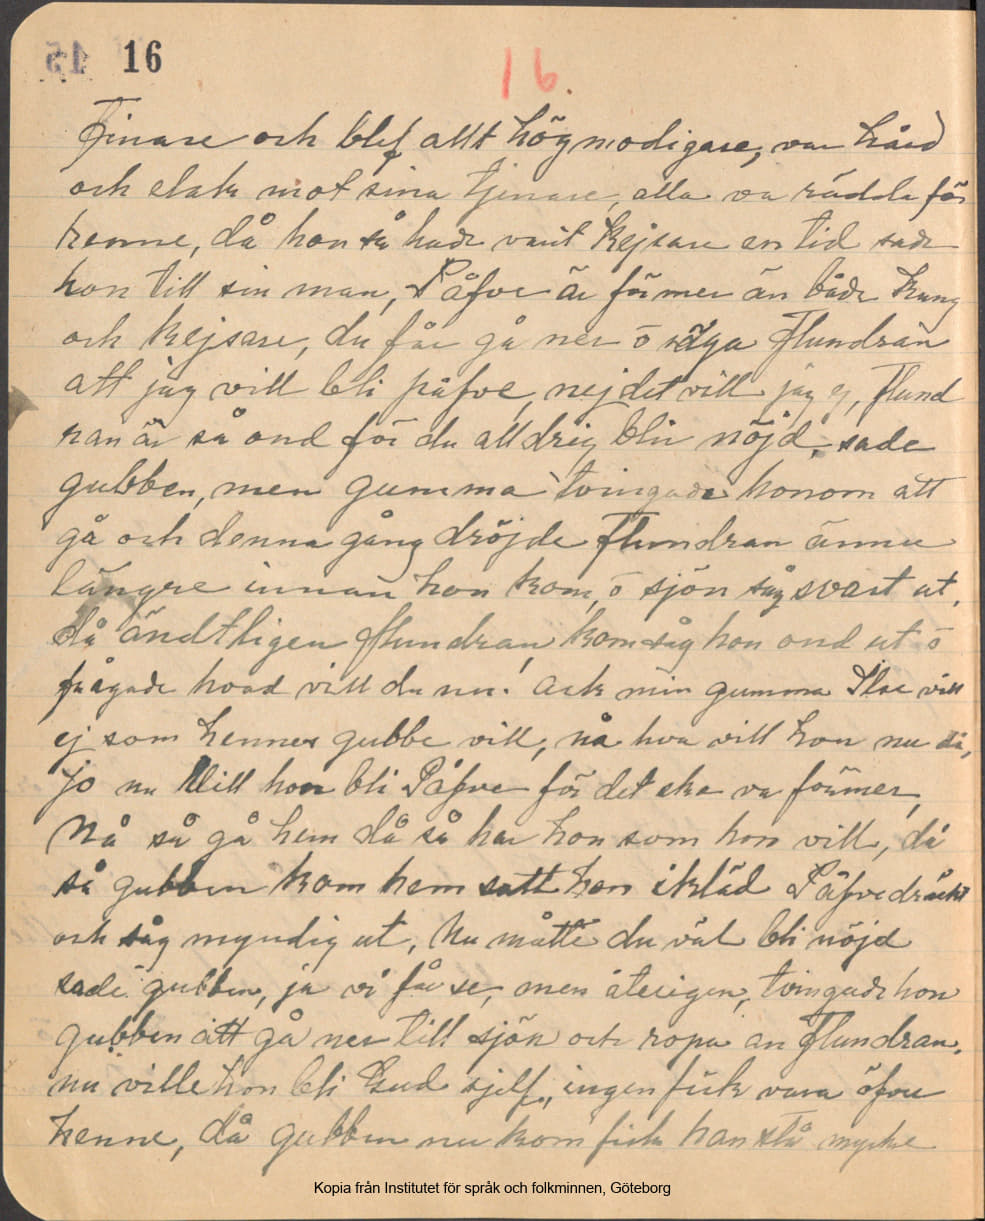 16
16.
Finare och blef allt högmodigare, var hård
och elak mot sina tjenare, alla va rädda för
henne, då hon så hade varit Kejsare en tid sade
hon till sin man, Påfve är förmer än både Kung
och Kejsare, du får gå ner o säga Flundran
att jag vill bli påfve, nej det vill jag ej, Flund
ran är så ond för du alldrig blir nöjd, sade
gubben, men gumma tvingade honom att
gå och denna gång dröjde Flundran ännu
längre innan hon kom, o sjön såg svart ut,
då ändtligen flundran kom såg hon ond ut o
frågade hvad vill du nu! Ack min gumma Ilse vill
ej som hennes gubbe vill, nå hva vill hon nu då,
jo nu vill hon bli Påfve för det ska va förmer,
Nå så gå hem då så har hon som hon vill, då
så gubben kom hem satt hon ikläd Påfvedräkt
och såg myndig ut, Nu måtte du väl bli nöjd
sade gubben, ja vi få se, men återigen, tvingade hon
gubben att gå ner till sjön och ropa an Flundran,
nu ville hon bli Gud sjelf, ingen fick vara öfver
henne, då gubben nu kom fick han stå mycke
Kopia från Institutet för språk och folkminnen, Göteborg